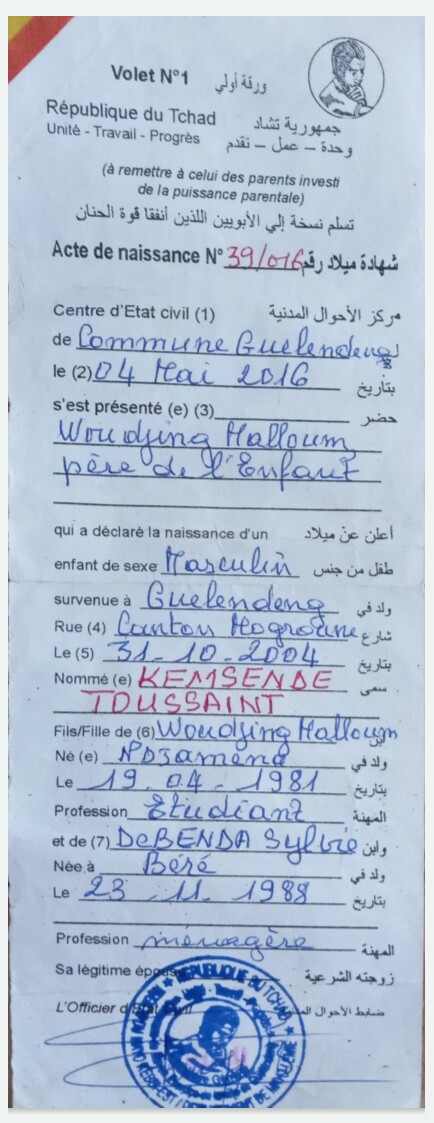 Volet N°1 ورقة أولي
République du Tchad جمهورية تشاد
Unité - Travail - Progrès وحدة – عمل – تقدم
(à remettre à celui des parents investi
de la puissance parentale)
تسلم نسخة إلي الأبويين اللذين أنفقا قوة الحنان
Acte de naissance N° 39/016 شهادة ميلاد رقم
Centre d'Etat civil (1) مركز الأحوال المدنية
de Commune Guelendeng
le (2) 04 Mai 2016 بتاريخ
s'est présenté (e) (3) حضر
Woudjing Halloum,
père de l'Enfant
qui a déclaré la naissance d'un أعلن عن ميلاد
enfant de sexe Masculin طفل من جنس
survenue à Guelendeng ولد في
Rue (4) Canton Mogroune شارع
Le (5) 31-10-2004 بتاريخ
Nommé (e) KEMSENDE سمى
TOUSSAINT
Fils/Fille de (6) Woudjing Halloum ابن
Né (e) NDjamena ولد في
Le 19.04.1981 بتاريخ
Profession Etudiant المهنة
et de (7) DeBENDA Sylvie وابن
Née à Béré ولد في
Le 23.11.1988 بتاريخ
Profession ménagère المهنة
Sa légitime épouse زوجته الشرعية
L'Officier d'Etat Civil ضابط الأحوال
REPUBLIQUE DU TCHAD